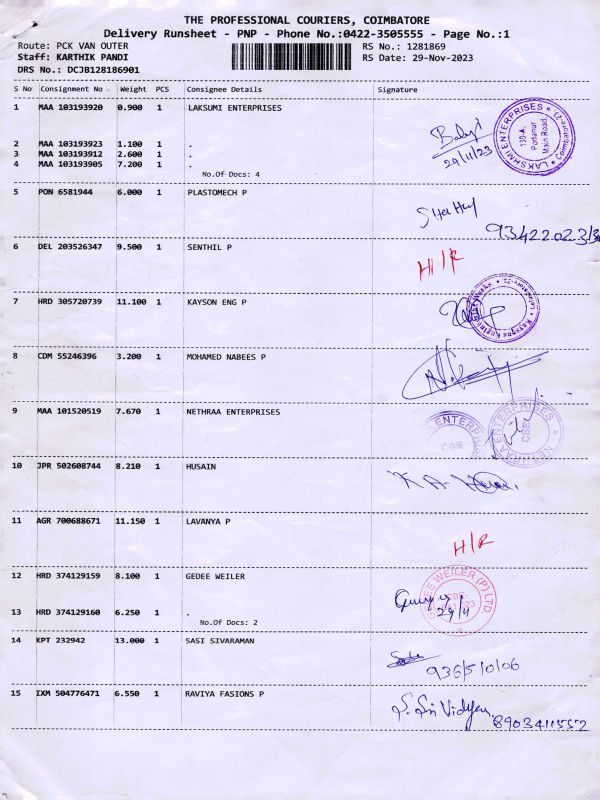 THE PROFESSIONAL COURIERS, COIMBATORE
Delivery Runsheet - PNP - Phone No.:0422-3505555 - Page No.:1
Route: PCK VAN OUTER RS No.: 1281869
Staff: KARTHIK PANDI RS Date: 29-Nov-2023
DRS No.: DCJB128186901
S No Consignment No Weight PCS Consignee Details Signature
1 MAA 103193920 0.900 1 LAKSUMI ENTERPRISES
LAKSHMI ENTERPRISES * Coimbatore-23 *
130-A,
Podanur
Main Road,
29/11/23
2 MAA 103193923 1.100 1 .
3 MAA 103193912 2.600 1 .
4 MAA 103193905 7.200 1 .
No.Of Docs: 4
5 PON 6581944 6.000 1 PLASTOMECH P
6 DEL 203526347 9.500 1 SENTHIL P
H/R
7 HRD 305720739 11.100 1 KAYSON ENG P
8 CDM 55246396 3.200 1 MOHAMED NABEES P
9 MAA 101520519 7.670 1 NETHRAA ENTERPRISES
ENTERPRISES
CBE
ENTERPRISES
CBE
10 JPR 502608744 8.210 1 HUSAIN
11 AGR 700688671 11.150 1 LAVANYA P
H/R
12 HRD 374129159 8.100 1 GEDEE WEILER
GEDEE WEILER (P) LTD
29/11
13 HRD 374129160 6.250 1 .
No.Of Docs: 2
14 KPT 232942 13.000 1 SASI SIVARAMAN
15 IXM 504776471 6.550 1 RAVIYA FASIONS P
S. Sri Vidhya
8903411552